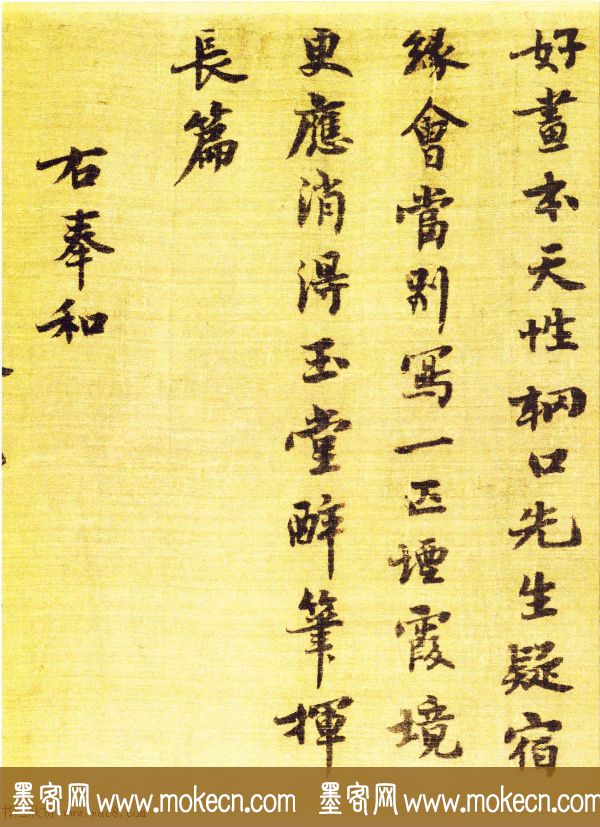 好畫本天性輞口先生疑宿
緣會當別寫一匹煙霞境
更應消得玉堂醉筆揮
長篇
右奉和
墨客网 www.mokecn.com 墨客网 www.mokecn.com